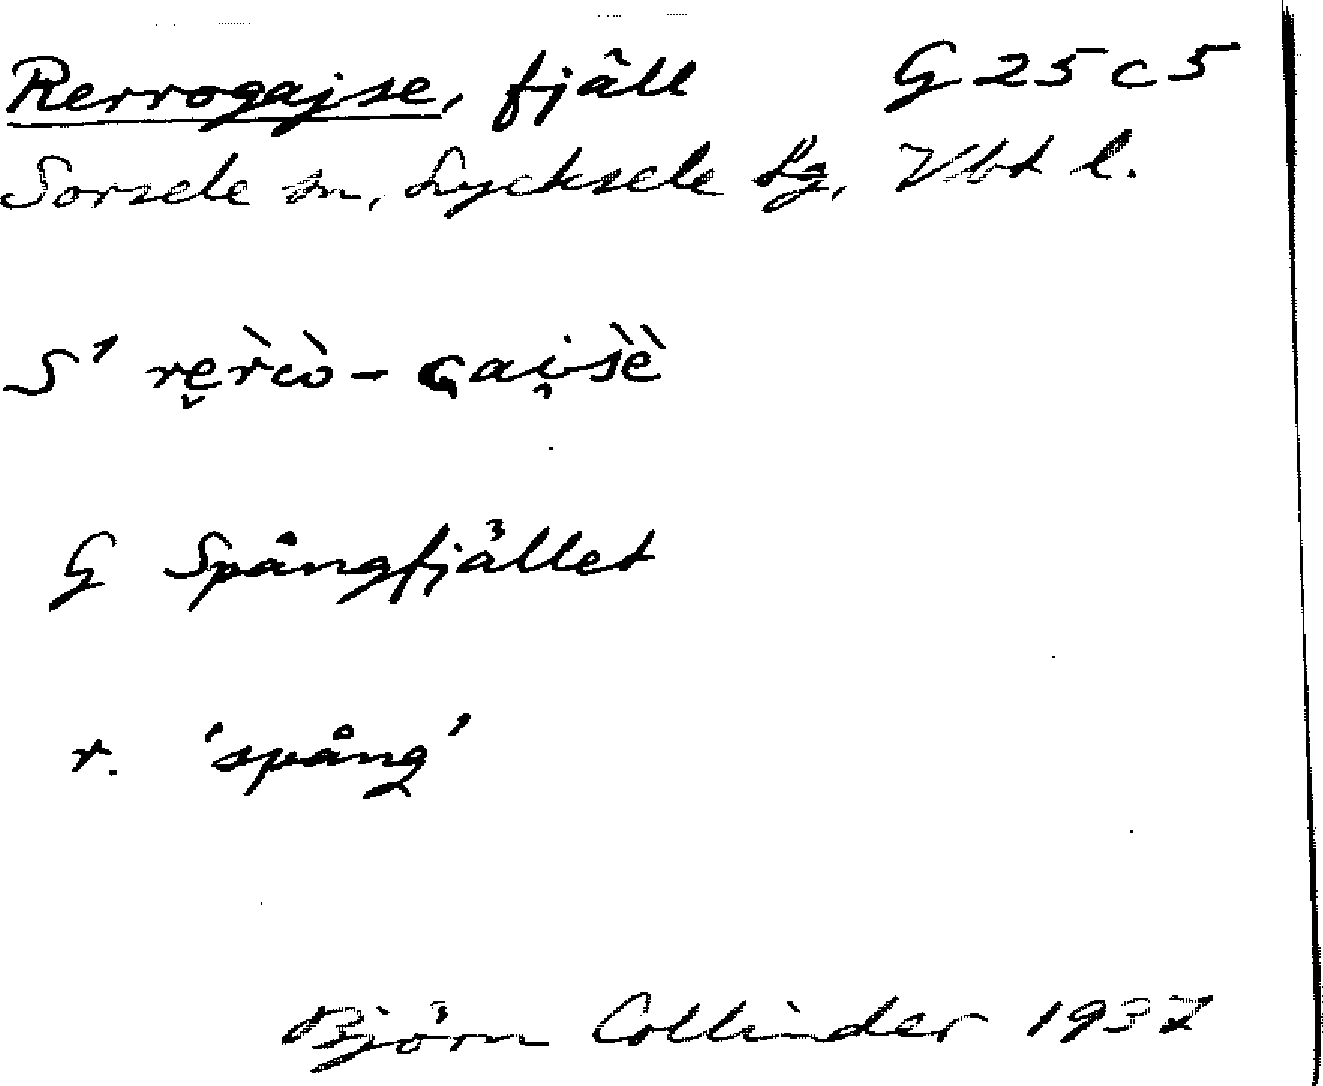 Rerrogajse, fjäll G 25 c 5
Sorsele sn, Lycksele lg, Vbt l.
S' re̬r̀cò - ɢai̭s̀è
G Spångfjället
r. 'spång'
Björn Collinder 1937